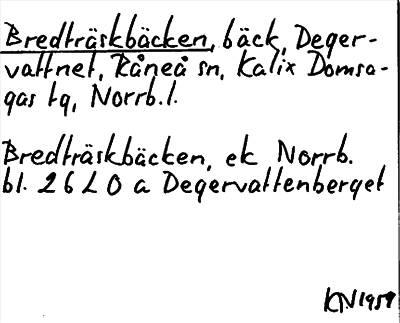 Bredträskbäcken, bäck, Deger-
vattnet, Råneå sn, Kalix Domsa-
gas tq, Norrb.l.
Bredträskbäcken, ek Norrb.
bl. 26 L 0 a Degervattenberget
KN 1959